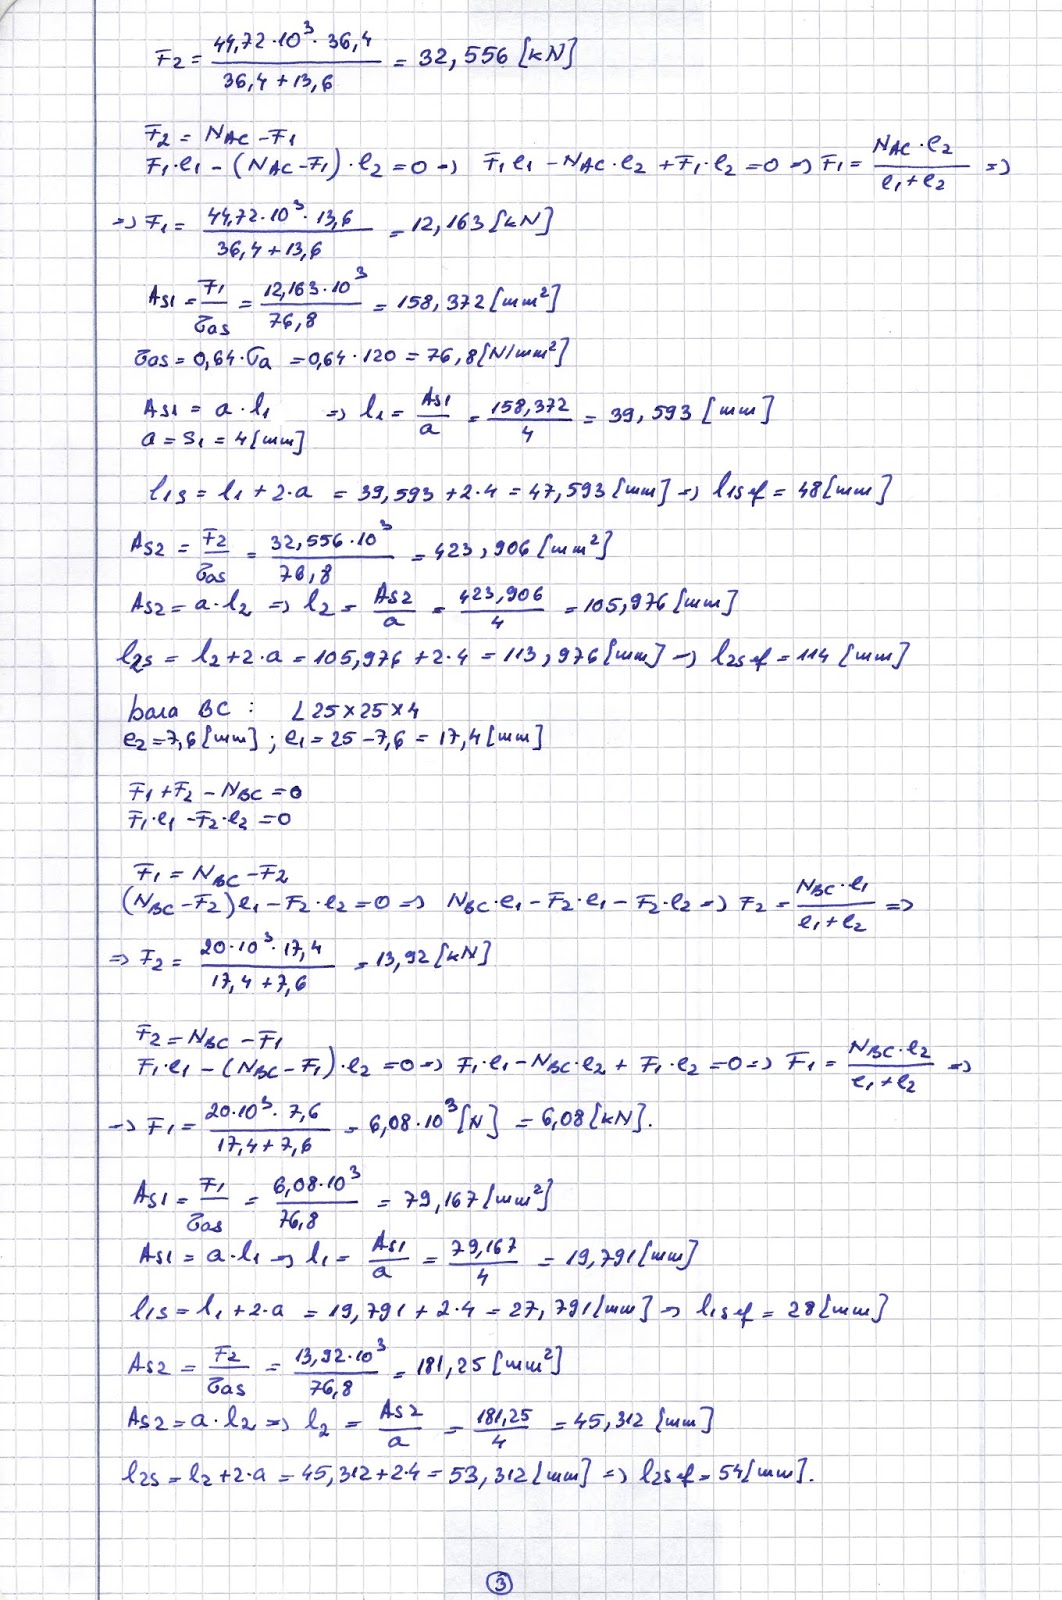 F2 = 44,72·10³·36,4 / 36,4+13,6 = 32,556 [kN]
F2 = NAC -F1
F1·e1 - (NAC-F1)·e2 =0 => F1 e1 - NAC·e2 +F1·e2 =0 => F1 = NAC·e2 / e1+e2 =>
=> F1 = 44,72·10³·13,6 / 36,4+13,6 = 12,163 [kN]
As1 = F1 / τas = 12,163·10³ / 76,8 = 158,372 [mm²]
τas = 0,64·σa = 0,64·120 = 76,8 [N/mm²]
As1 = a·l1 => l1 = As1 / a = 158,372 / 4 = 39,593 [mm]
a = s1 = 4 [mm]
l1s = l1 + 2·a = 39,593 +2·4 = 47,593 [mm] => l1s ef = 48 [mm]
As2 = F2 / τas = 32,556·10³ / 76,8 = 423,906 [mm²]
As2 = a·l2 => l2 = As2 / a = 423,906 / 4 = 105,976 [mm]
l2s = l2+2·a = 105,976 +2·4 = 113,976 [mm] => l2s ef = 114 [mm]
bara BC : L 25×25×4
e2 =7,6 [mm] ; e1 = 25 -7,6 = 17,4 [mm]
F1 +F2 - NBC =0
F1·e1 -F2·e2 =0
F1 = NBC -F2
(NBC -F2) e1 - F2·e2 =0 => NBC·e1 - F2·e1 - F2·e2 => F2 = NBC·e1 / e1+e2 =>
=> F2 = 20·10³·17,4 / 17,4+7,6 = 13,92 [kN]
F2 = NBC -F1
F1·e1 - (NBC -F1)·e2 =0 => F1·e1 - NBC·e2 + F1·e2 =0 => F1 = NBC·e2 / e1+e2 =>
=> F1 = 20·10³·7,6 / 17,4+7,6 = 6,08·10³ [N] = 6,08 [kN].
As1 = F1 / τas = 6,08·10³ / 76,8 = 79,167 [mm²]
As1 = a·l1 => l1 = As1 / a = 79,167 / 4 = 19,791 [mm]
l1s = l1 +2·a = 19,791 + 2·4 = 27,791 [mm] => l1s ef = 28 [mm]
As2 = F2 / τas = 13,92·10³ / 76,8 = 181,25 [mm²]
As2 = a·l2 => l2 = As2 / a = 181,25 / 4 = 45,312 [mm]
l2s = l2 +2·a = 45,312 +2·4 = 53,312 [mm] => l2s ef = 54 [mm].
3